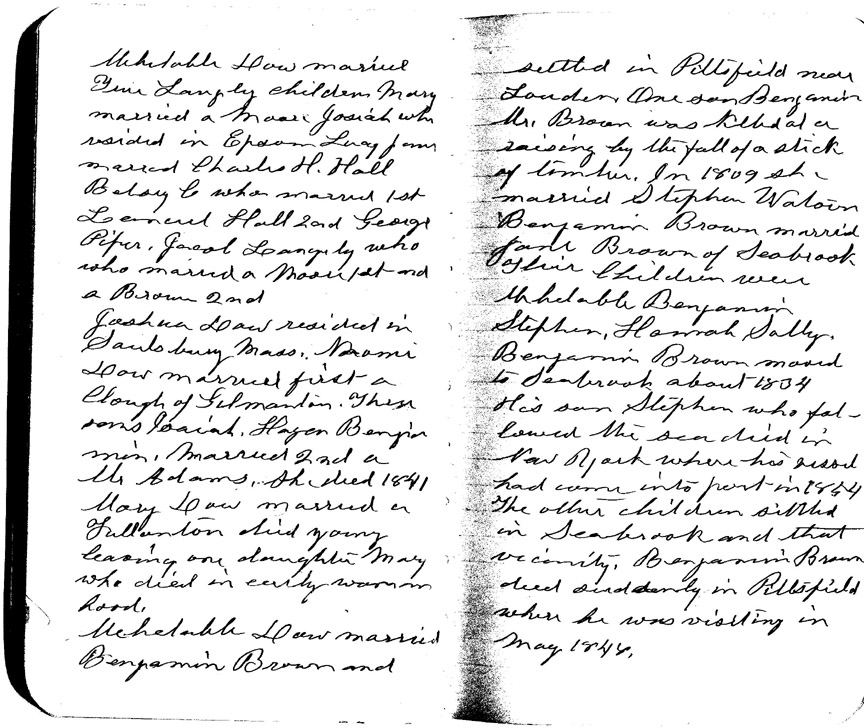 Mehetable Dow married
Langly children Mary
married a Moore Josiah who
resided in Epsom Lucy Jane
married Charles H. Hall
Betsey C who married 1st
Leonard Hall 2nd George
Piper. Jacob Langely who
who married a Moore 1st and
a Brown 2nd
Joshua Dow resided in
Saulsbury Mass. Naomi
Dow married first a
Clough of Gilmanton. Three
sons Isaiah, Hazen Benja
min. Married 2nd a
Mr Adams. She died 1841
Mary Dow married a
Fullonton died young
leaving one daughter Mary
who died in early woman
hood.
Mehetable Dow married
Benjamin Brown and
settled in Pittsfield near
Loudon One son Benjamin
Mr. Brown was killed at a
raising by the fall of a stick
of timber. In 1809 she
married Stephen Watson
Benjamin Brown married
Jane Brown of Seabrook
Their Children were
Mehetable Benjamin
Stephen, Hannah Sally.
Benjamin Brown moved
to Seabrook about 1834
His son Stephen who fol-
lowed the sea died in
New York where his vessel
had come into port in 1854
The other children settled
in Seabrook and that
vicinity. Benjamin Brown
died suddenly in Pittsfield
where he was visiting in
May 1848.